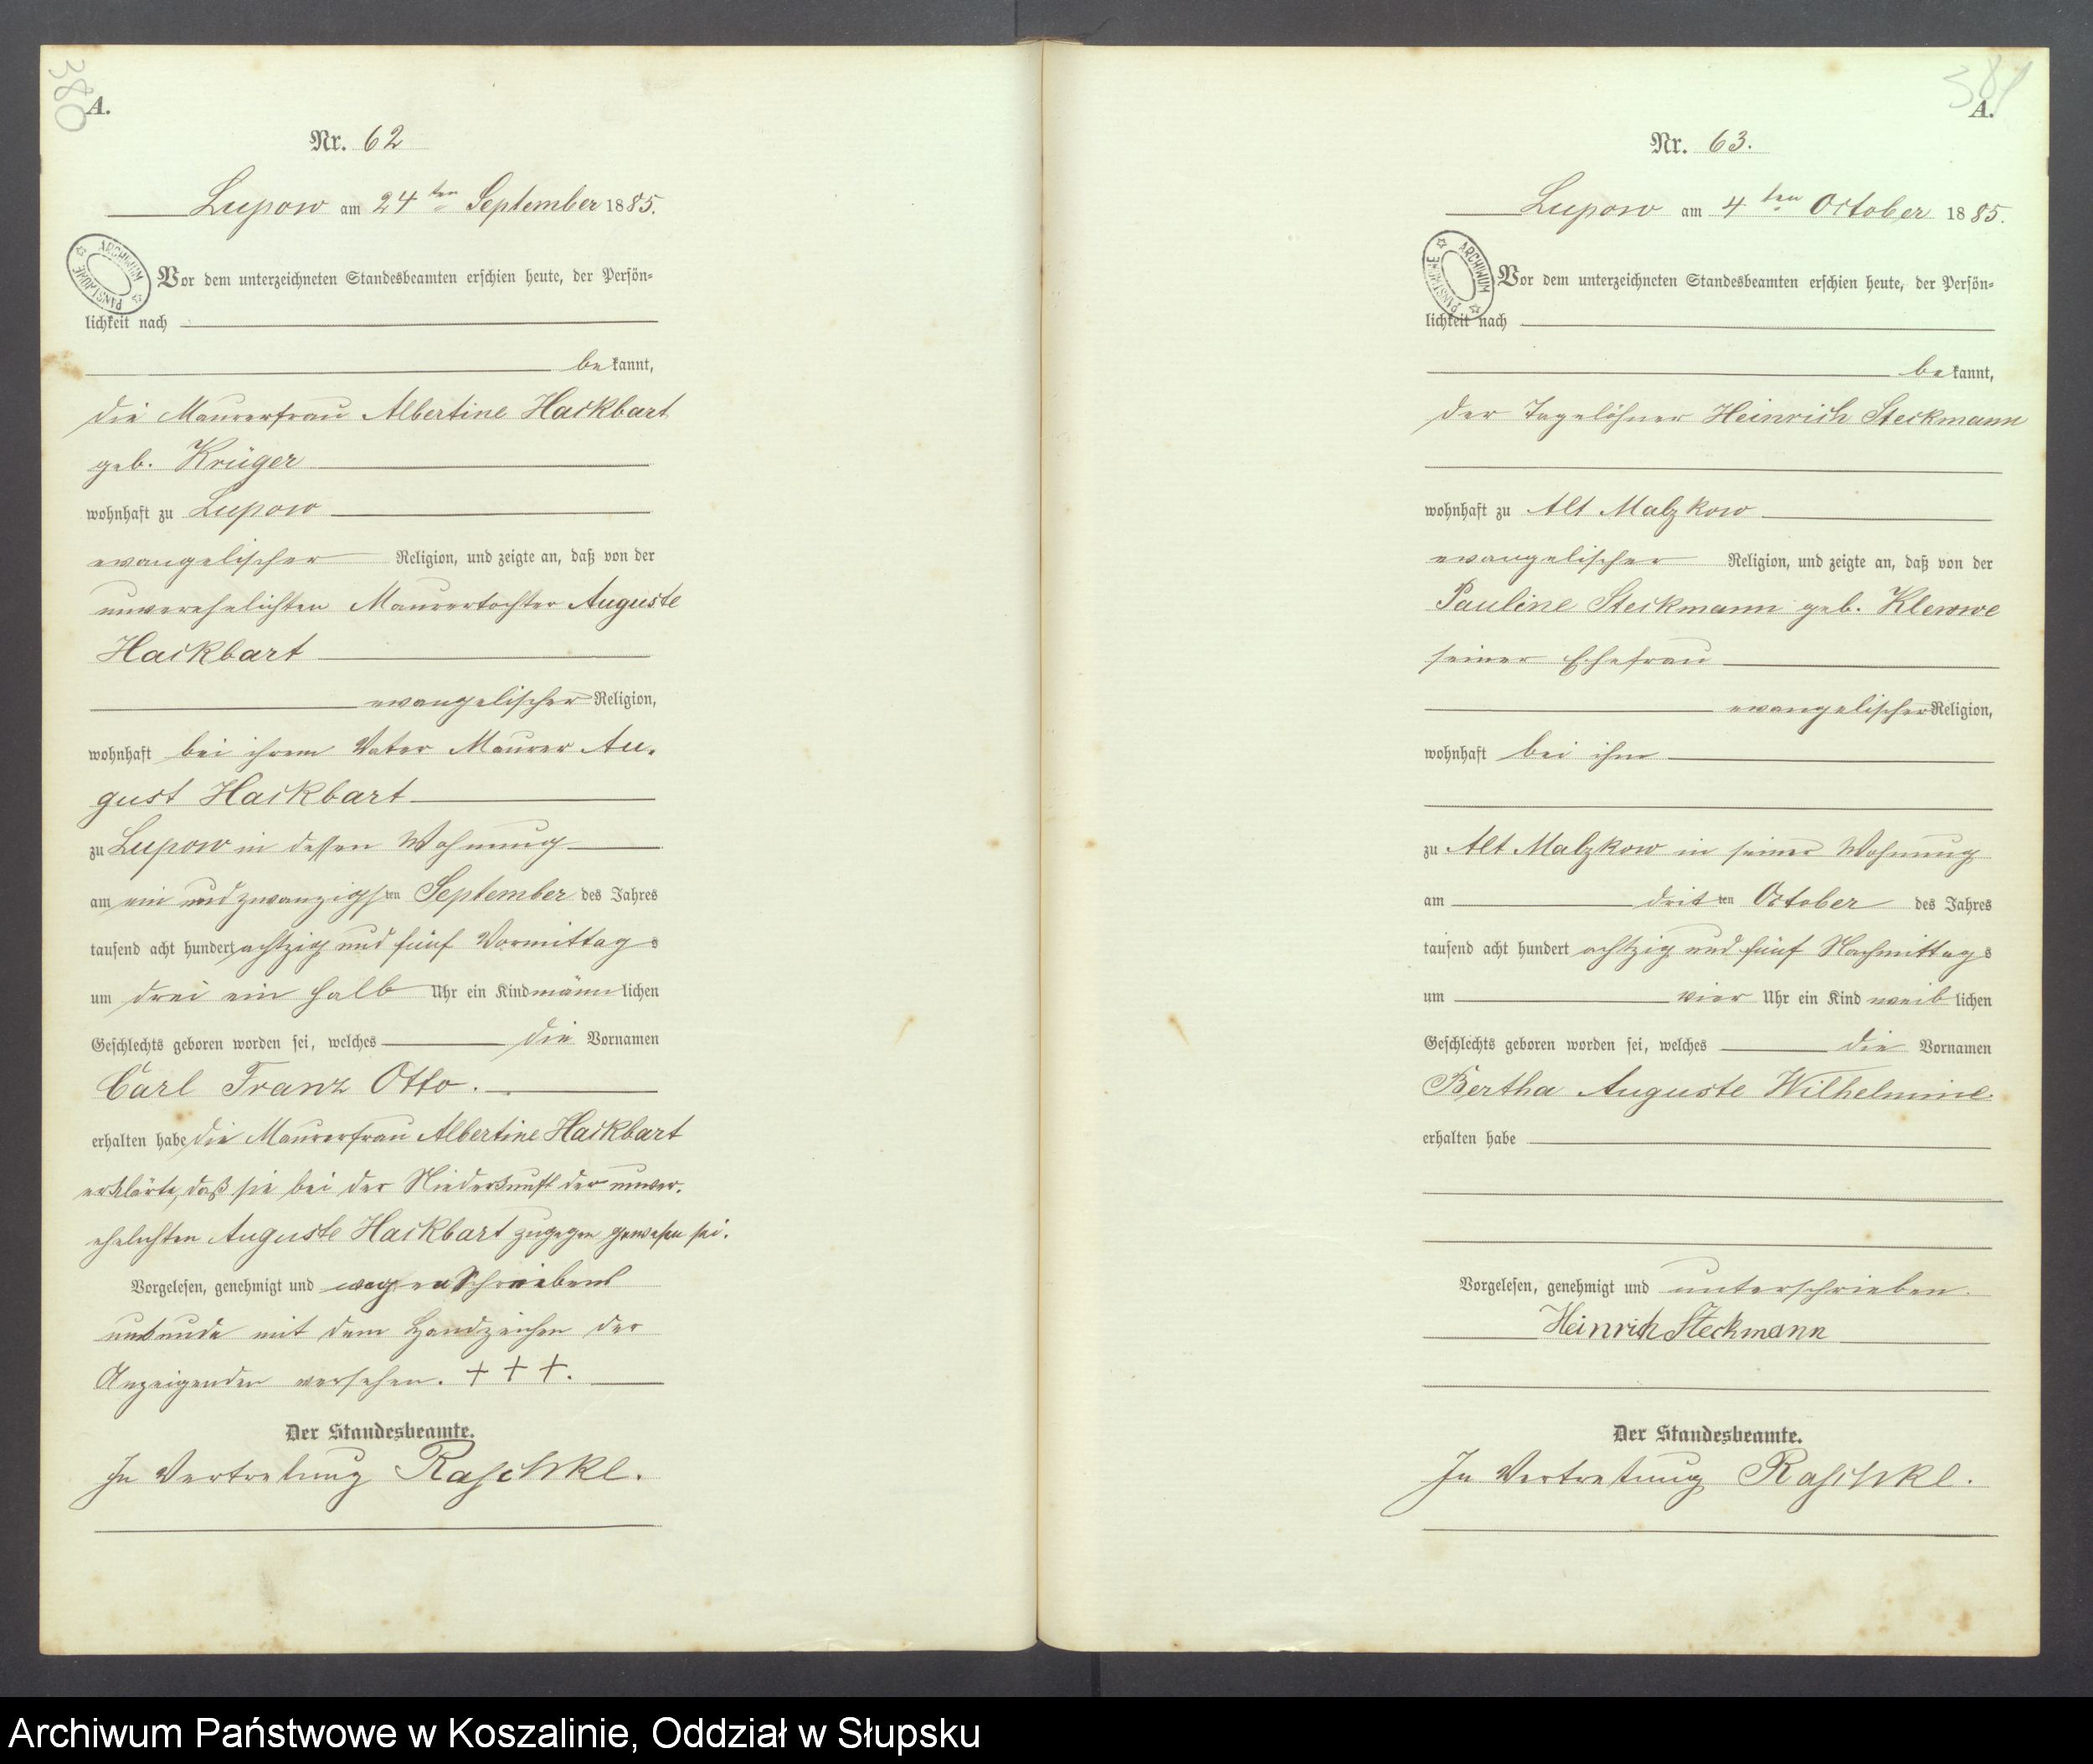 380
A.
Nr. 62
Lupow am 24ten September 1885.
ARCHIWUM PAŃSTWOWE
Vor dem unterzeichneten Standesbeamten erschien heute, der Persön-
lichkeit nach
bekannt,
die Maurerfrau Albertine Hackbart
geb. Krüger
wohnhaft zu Lupow
evangelischer Religion, und zeigte an, daß von der
unverehelichten Maurertochter Auguste
Hackbart
evangelischer Religion,
wohnhaft bei ihrem Vater Maurer Au-
gust Hackbart
zu Lupow in dessen Wohnung
am ein und zwanzigsten September des Jahres
tausend acht hundert achtzig und fünf Vormittags
um drei ein halb Uhr ein Kind männlichen
Geschlechts geboren worden sei, welches die Vornamen
Carl Franz Otto.
erhalten habe die Maurerfrau Albertine Hackbart
erklärte, daß sie bei der Niederkunft der unver-
ehelichten Auguste Hackbart zugegen gewesen sei.
Vorgelesen, genehmigt und wegen Schreibens
unkunde mit dem Handzeichen der
Anzeigenden versehen. + + +.
Der Standesbeamte.
In Vertretung Raschke.
381
A.
Nr. 63.
Lupow am 4ten October 1885.
ARCHIWUM PAŃSTWOWE
Vor dem unterzeichneten Standesbeamten erschien heute, der Persön-
lichkeit nach
bekannt,
der Tagelöhner Heinrich Steckmann
wohnhaft zu Alt Malzkow
evangelischer Religion, und zeigte an, daß von der
Pauline Steckmann geb. Klewwe
seiner Ehefrau
evangelischer Religion,
wohnhaft bei ihm
zu Alt Malzkow in seiner Wohnung
am dritten October des Jahres
tausend acht hundert achtzig und fünf Nachmittags
um vier Uhr ein Kind weiblichen
Geschlechts geboren worden sei, welches die Vornamen
Bertha Auguste Wilhelmine.
erhalten habe
Vorgelesen, genehmigt und unterschrieben.
Heinrich Steckmann
Der Standesbeamte.
In Vertretung Raschke.
Archiwum Państwowe w Koszalinie, Oddział w Słupsku